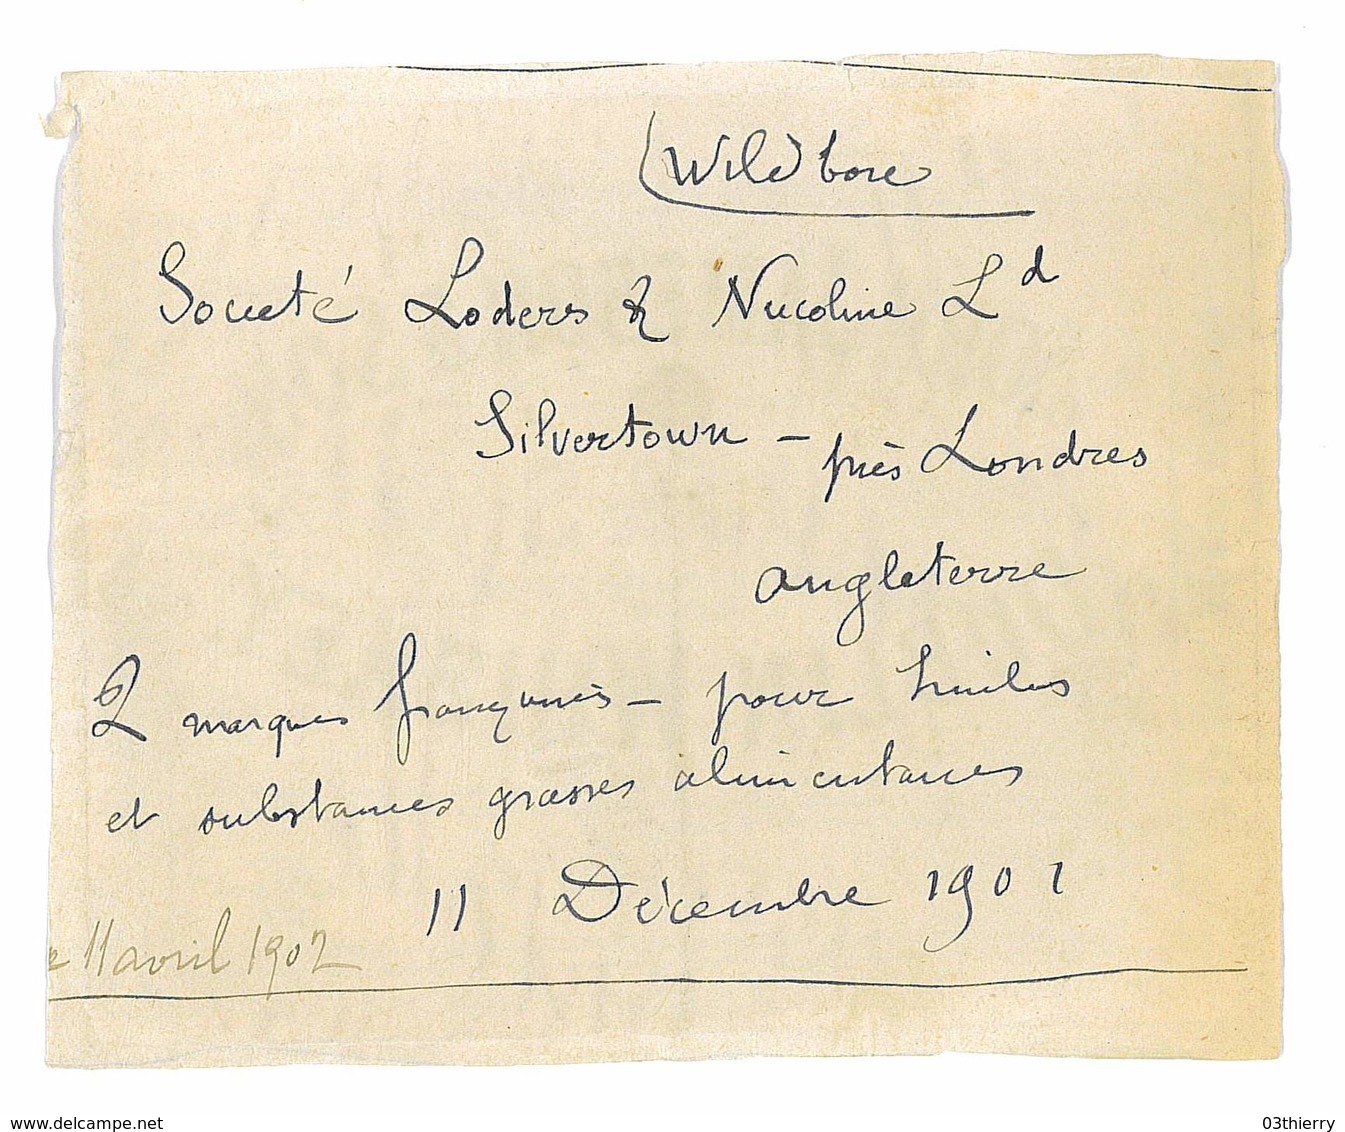 (Wildbore
Société Loders & Nucoline Ld
Silvertown – près Londres
Angleterre
2 marques françaises – pour huiles
et substances grasses alimentaires
11 Décembre 1901
11 avril 1902
www.delcampe.net
03thierry